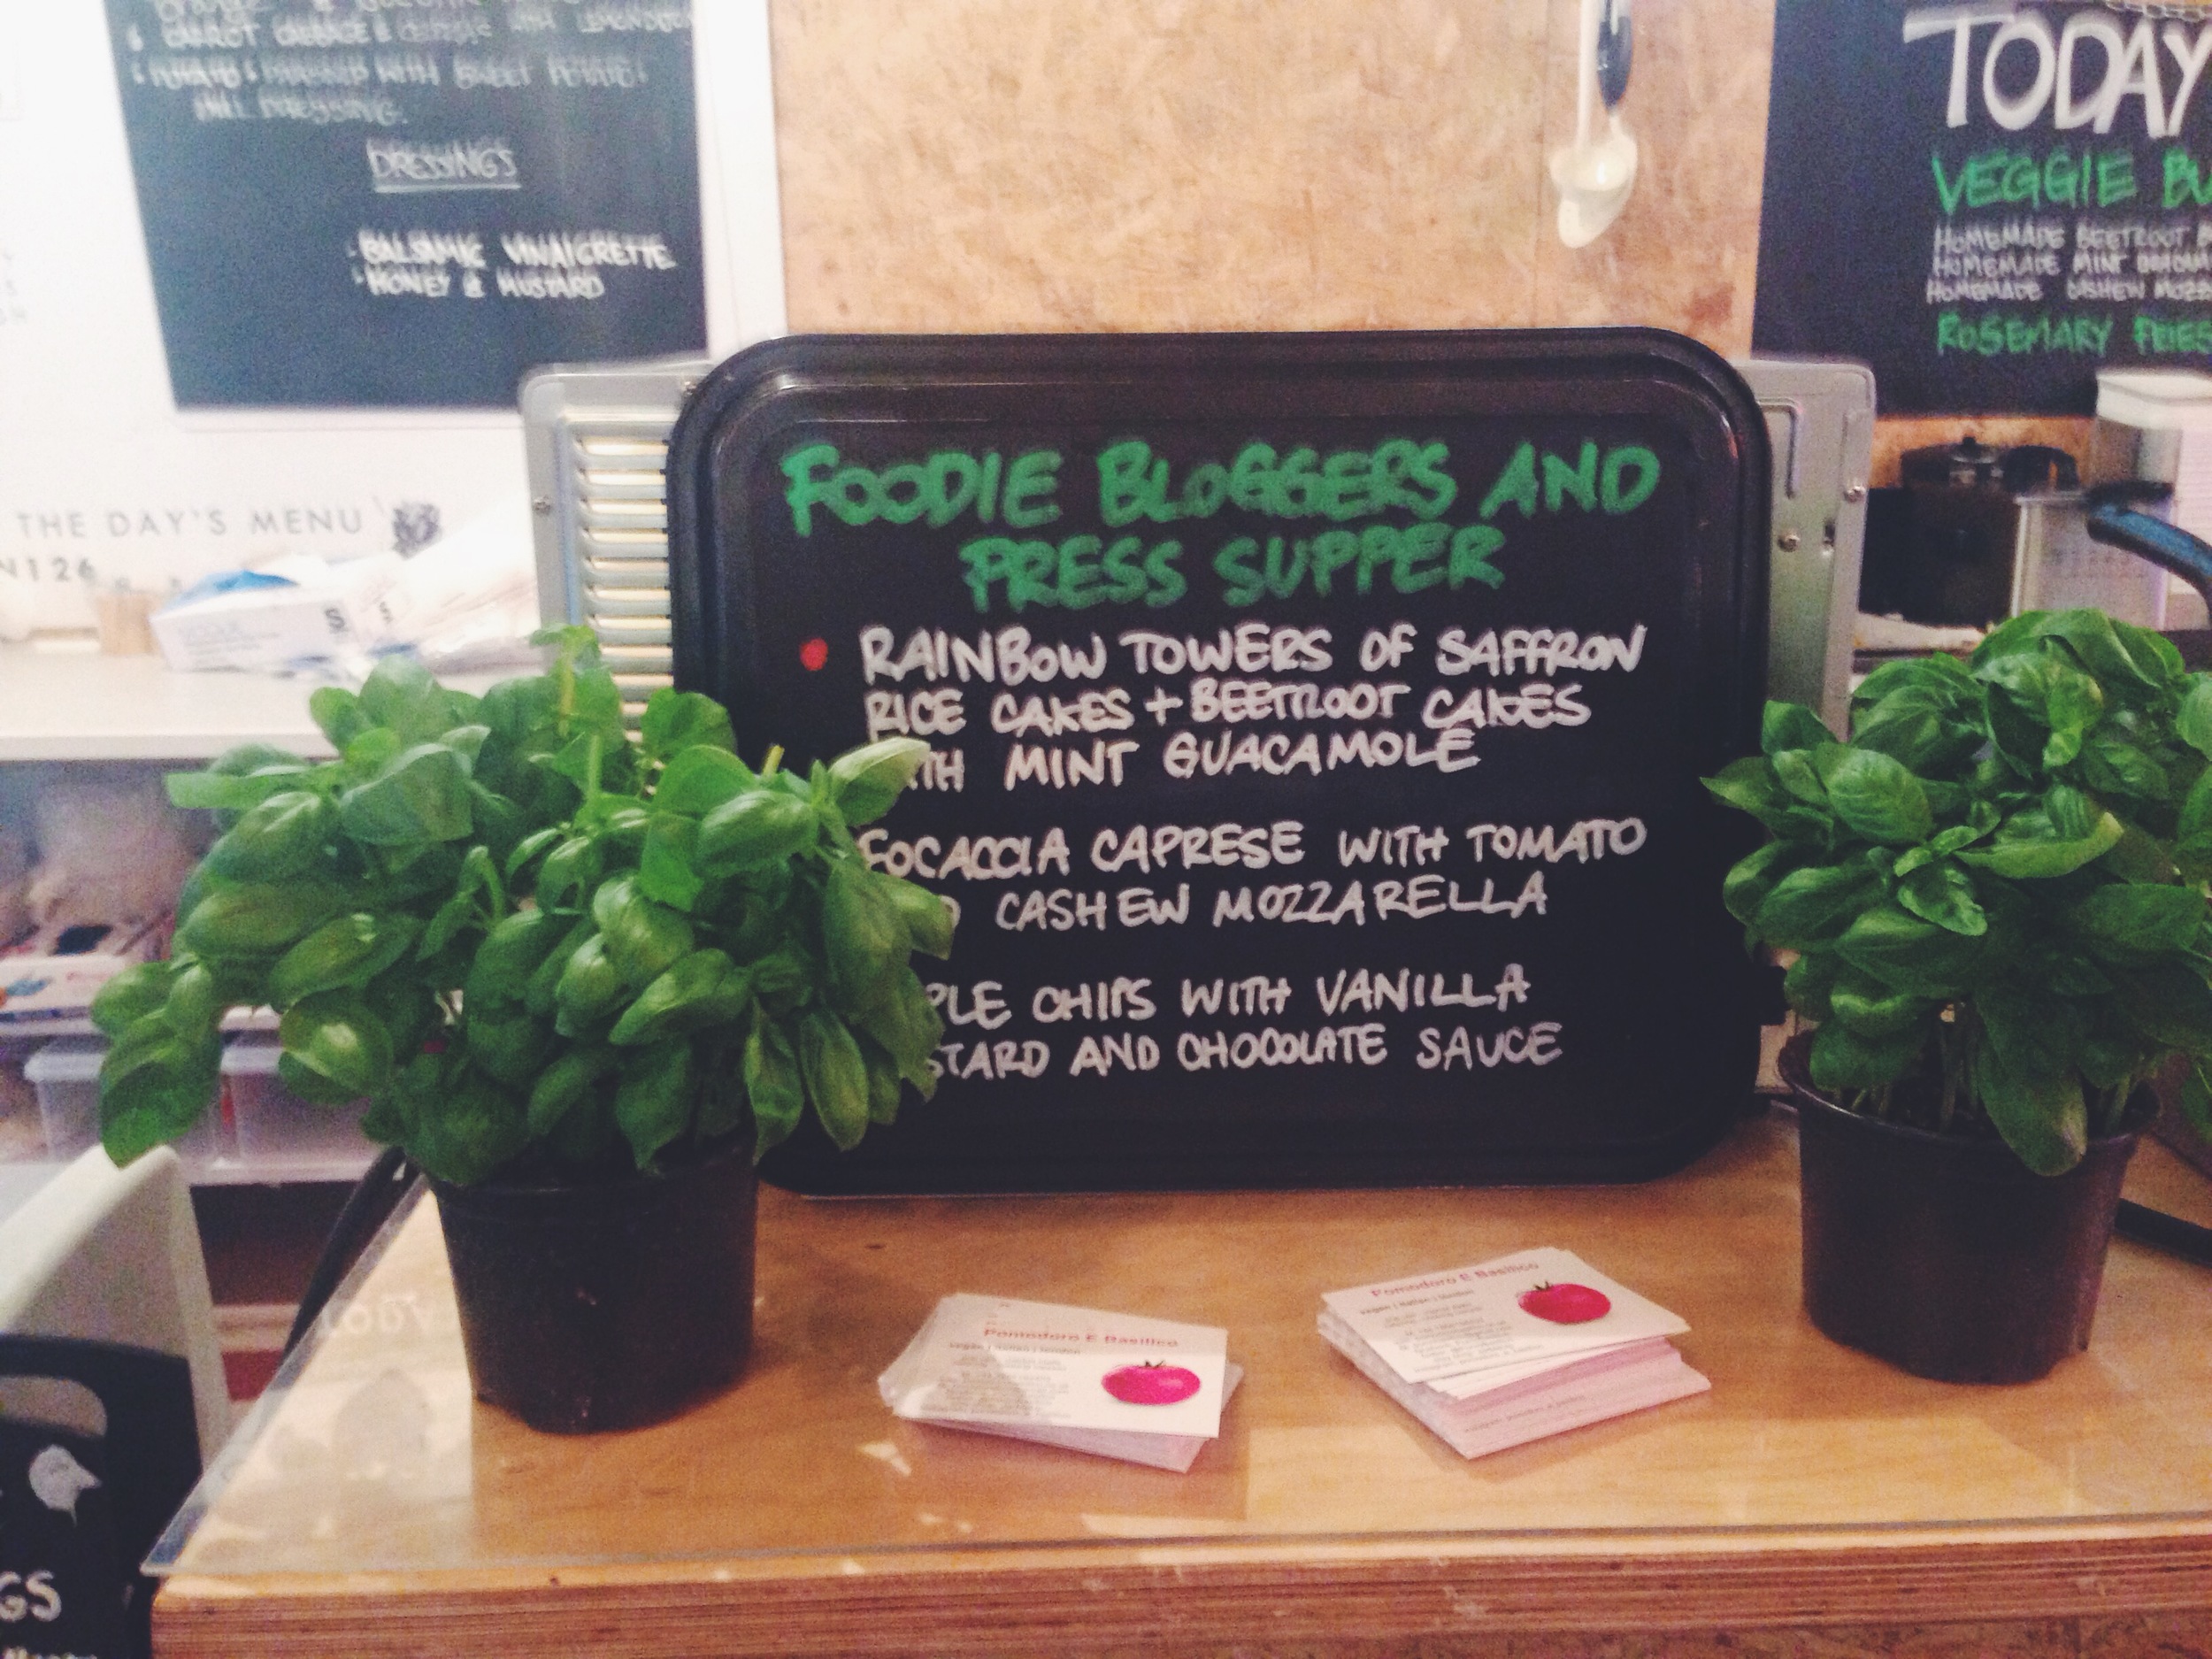 CARROT CABBAGE &
WITH SWEET POTATO &
DRESSING.
DRESSINGS
BALSAMIC VINAIGRETTE
HONEY & MUSTARD
THE DAY'S MENU
N126
TODAY
VEGGIE BU
HOMEMADE BEETROOT
HOMEMADE MINT
HOMEMADE CASHEW MOZZ
ROSEMARY FRIES
FOODIE BLOGGERS AND
PRESS SUPPER
• RAINBOW TOWERS OF SAFFRON
RICE CAKES + BEETROOT CAKES
ITH MINT GUACAMOLE
FOCACCIA CAPRESE WITH TOMATO
D CASHEW MOZZARELLA
PLE CHIPS WITH VANILLA
STARD AND CHOCOLATE SAUCE
Pomodoro E Basilico
vegan | italian | london
Pomodoro E Basilico
vegan | italian | london
GS